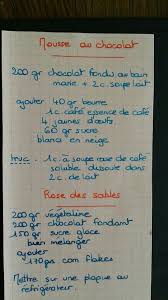 Mousse au chocolat
200 gr chocolat fondu au bain
marie + 2 c. soupe lait
ajouter 40 gr beurre
1 c. café essence de café
4 jaunes d'œufs
60 gr sucre
blancs en neige
truc. 1 c. à soupe rase de café
soluble dissout dans
2 c. de lait
Rose des sables
200 gr végétaline
200 gr chocolat fondant
150 gr sucre glace
bien mélanger
ajouter
110 grs corn flakes
Mettre sur une plaque au
réfrigérateur.